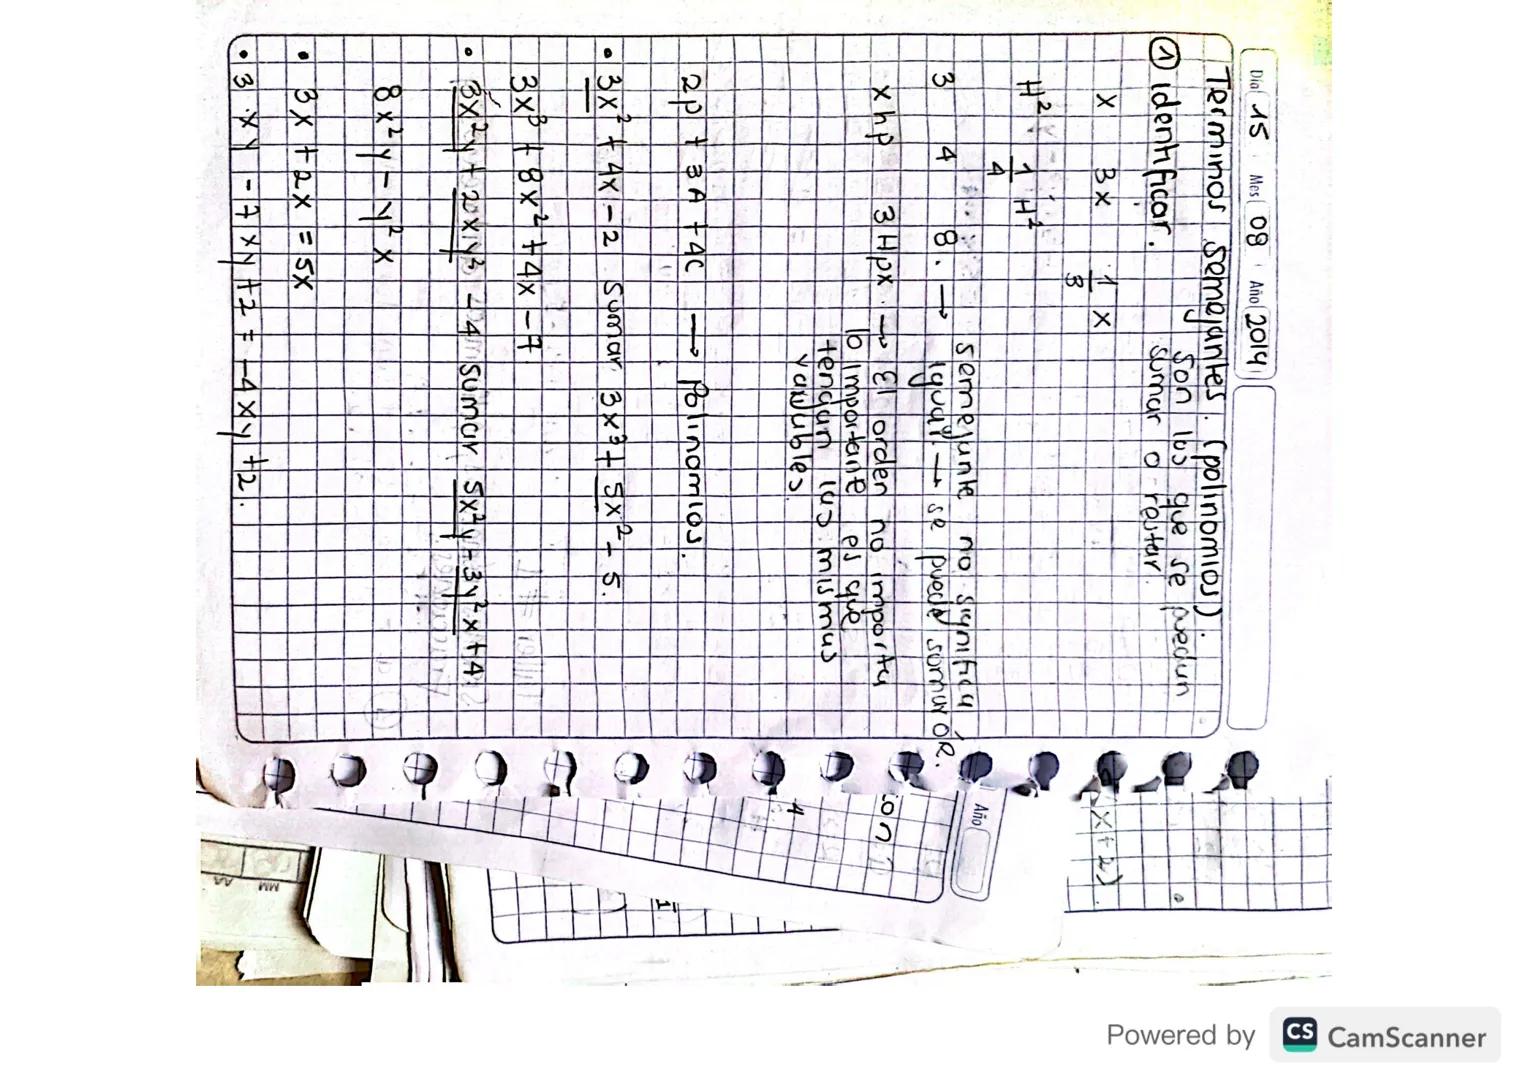 Día 15 Mes 08 Año 2014
Terminos semejantes. (polinomios).
① identificar.
Son las que se puedun
sumar o restar.
x 3x 1/3 x
H² 1/4 H²
3 4 8. → semejante no significa
igual → se puede sumar ó R.
x h p 3Hpx → El orden no importa
lo importante es que
tengan las mismas
variables
2p + 3A + 4C → polinomios.
• 3x² + 4x - 2 sumar 3x³ + 5x² - 5.
3x³ + 8x² + 4x - 7
• 3x²y + 2xy² - 4 sumar 5x²y - 3y²x + 4
8x²y - y²x
• 3x + 2x = 5x
• 3xy - 7xy + 2 = -4xy + 2.
Año
ion
4
x + 2)
Powered by CS CamScanner